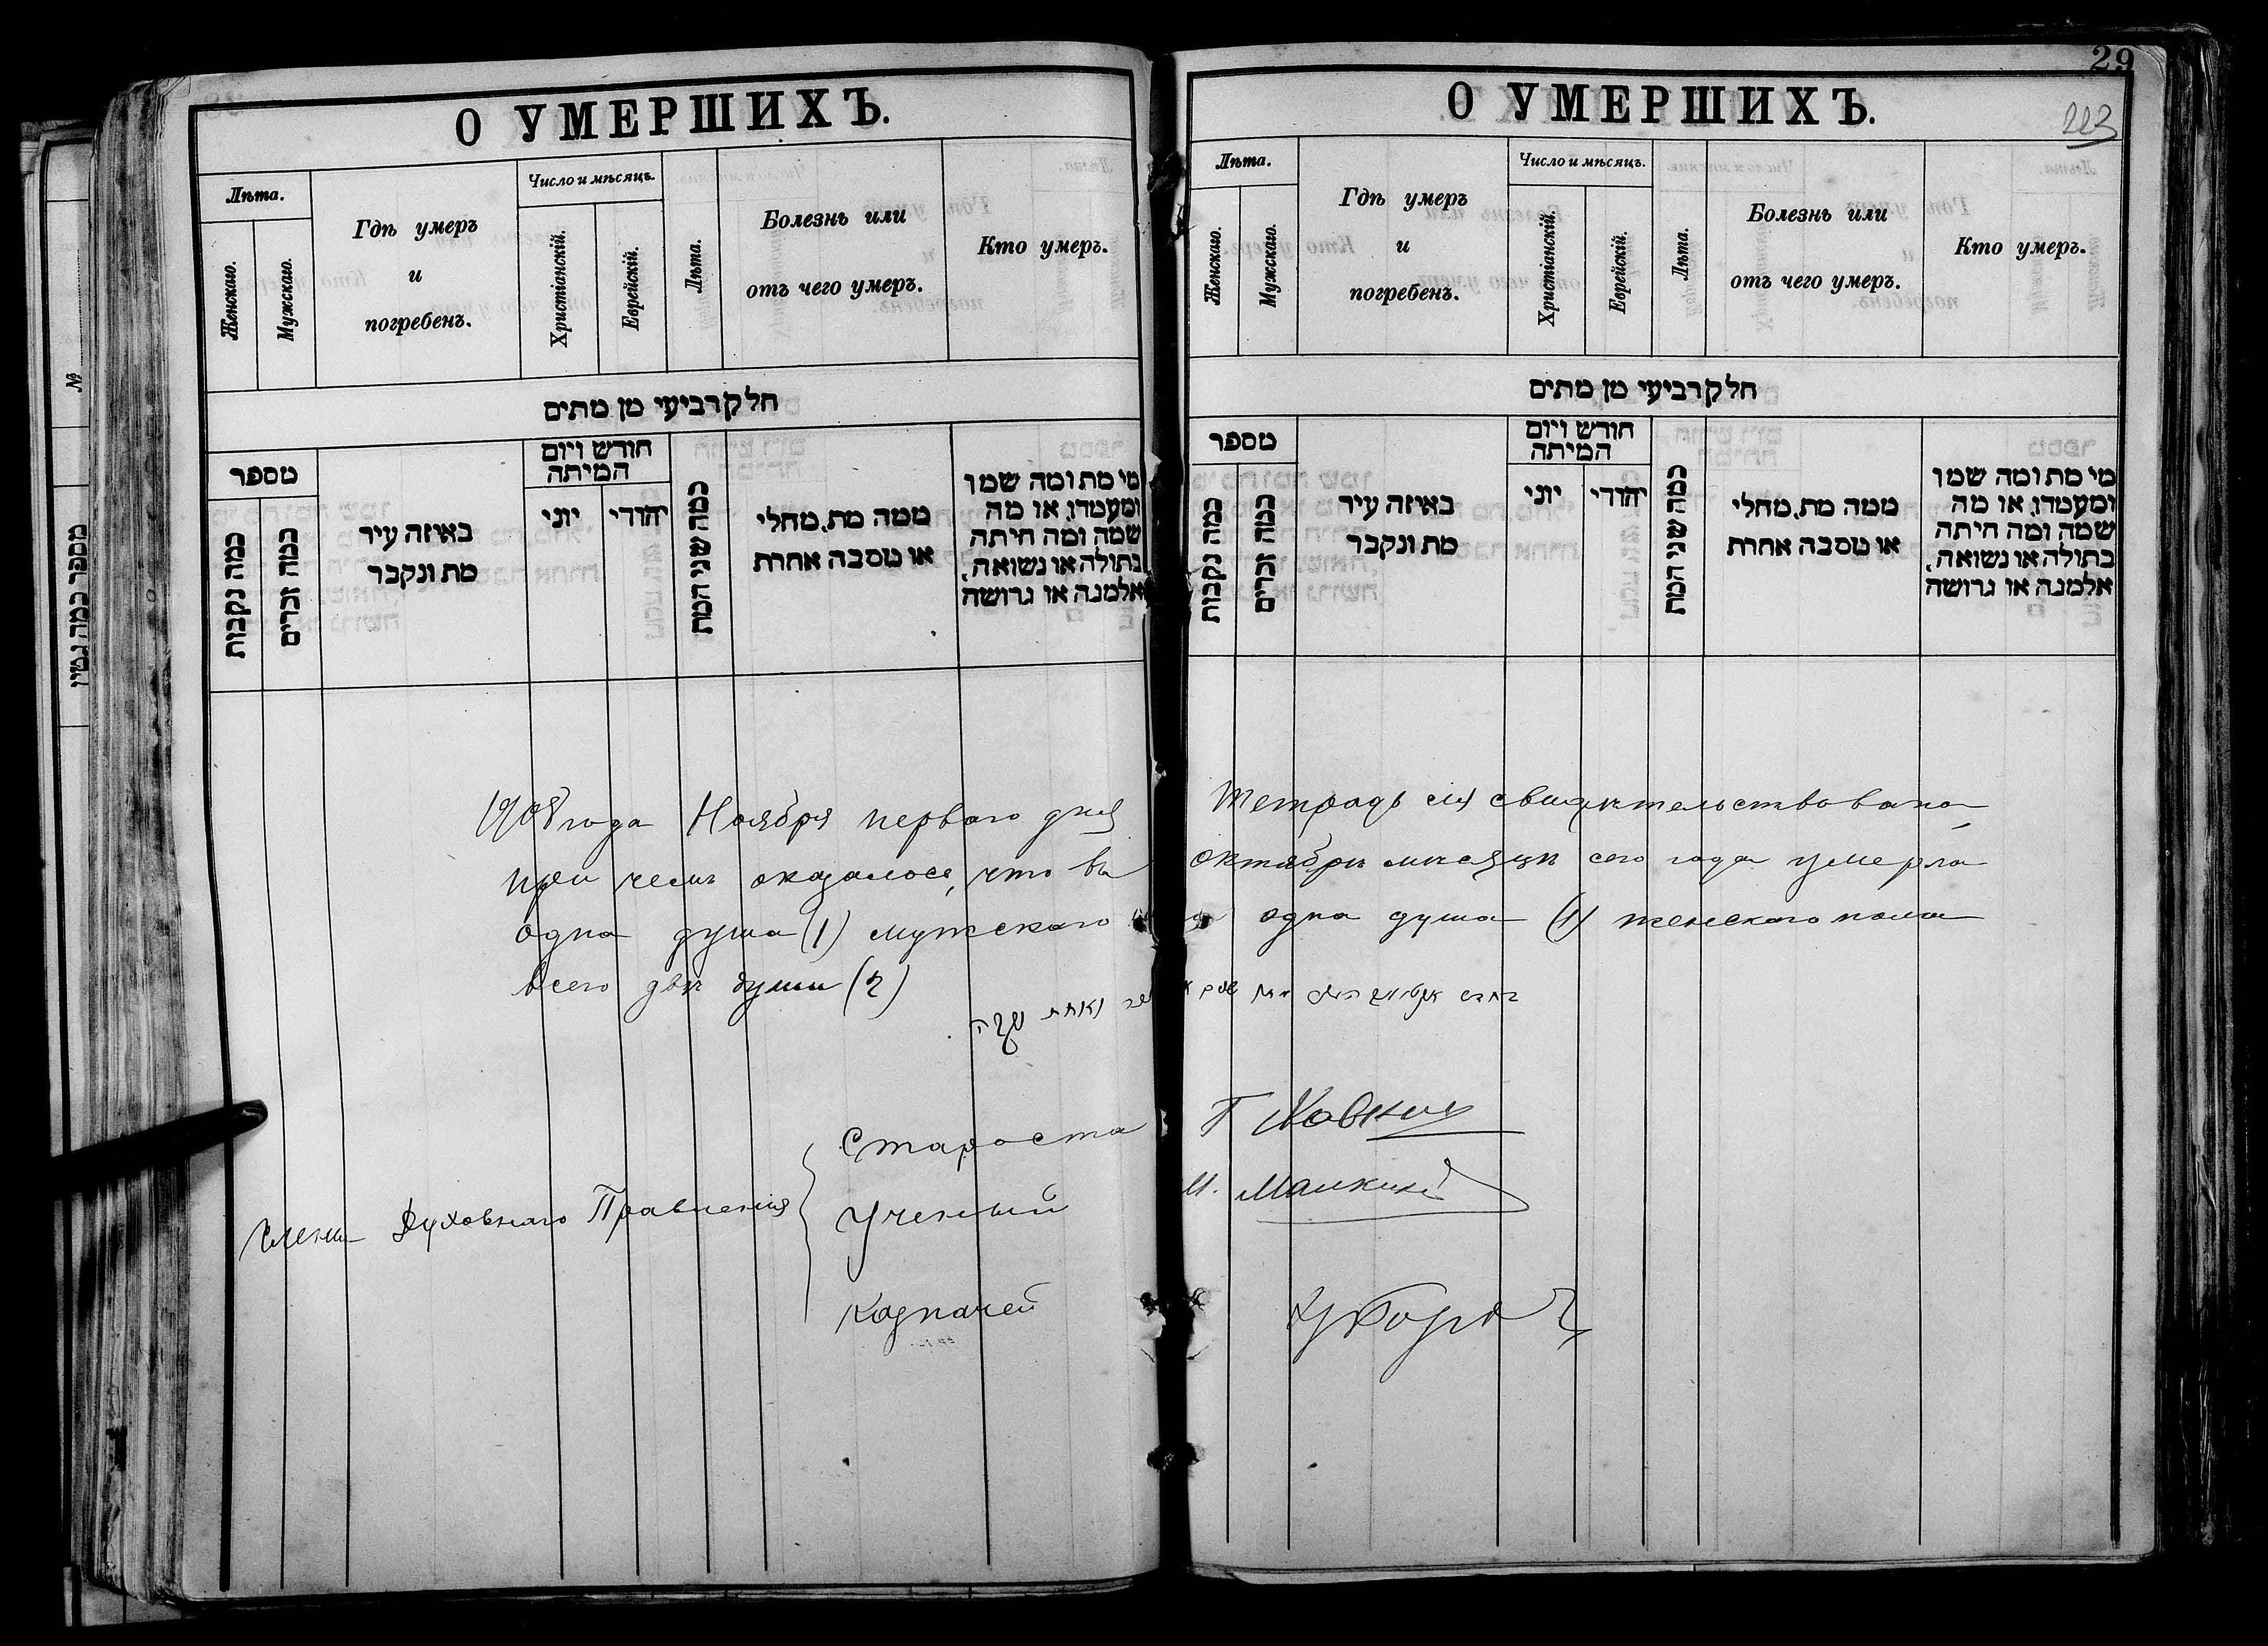 О УМЕРШИХЪ.
Лѣта.
Женскаго.
Мужскаго.
Гдѣ умеръ
и
погребенъ.
Число и мѣсяцъ.
Христіанскій.
Еврейскій.
Лѣта.
Болезнь или
отъ чего умеръ.
Кто умеръ.
חלק רביעי מן מתים
מספר
כמה נקבות
כמה זכרים
באיזה עיר
מת ונקבר
חודש ויום
המיתה
יוני
יהודי
כמה שני המת
ממה מת, מחלי
או מסבה אחרת
מי מת ומה שמו
ומעמדו, או מה
שמה ומה היתה
בתולה או נשואה,
אלמנה או גרושה
1908 года Ноября перваго дня
при чемъ оказалось, что въ
одна душа (1) мужскаго
всего двѣ души (2)
ואחת
Члены Духовнаго Правленія
Староста
Ученый
Казначей
№
מספר כמה גטין
29
223
О УМЕРШИХЪ.
Лѣта.
Женскаго.
Мужскаго.
Гдѣ умеръ
и
погребенъ.
Число и мѣсяцъ.
Христіанскій.
Еврейскій.
Лѣта.
Болезнь или
отъ чего умеръ.
Кто умеръ.
חלק רביעי מן מתים
מספר
כמה נקבות
כמה זכרים
באיזה עיר
מת ונקבר
חודש ויום
המיתה
יוני
יהודי
כמה שני המת
ממה מת, מחלי
או מסבה אחרת
מי מת ומה שמו
ומעמדו, או מה
שמה ומה היתה
בתולה או נשואה,
אלמנה או גרושה
Тетрадь сія свидѣтельствована
октябрѣ мѣсяцѣ сего года умерла
одна душа (1) женскаго пола